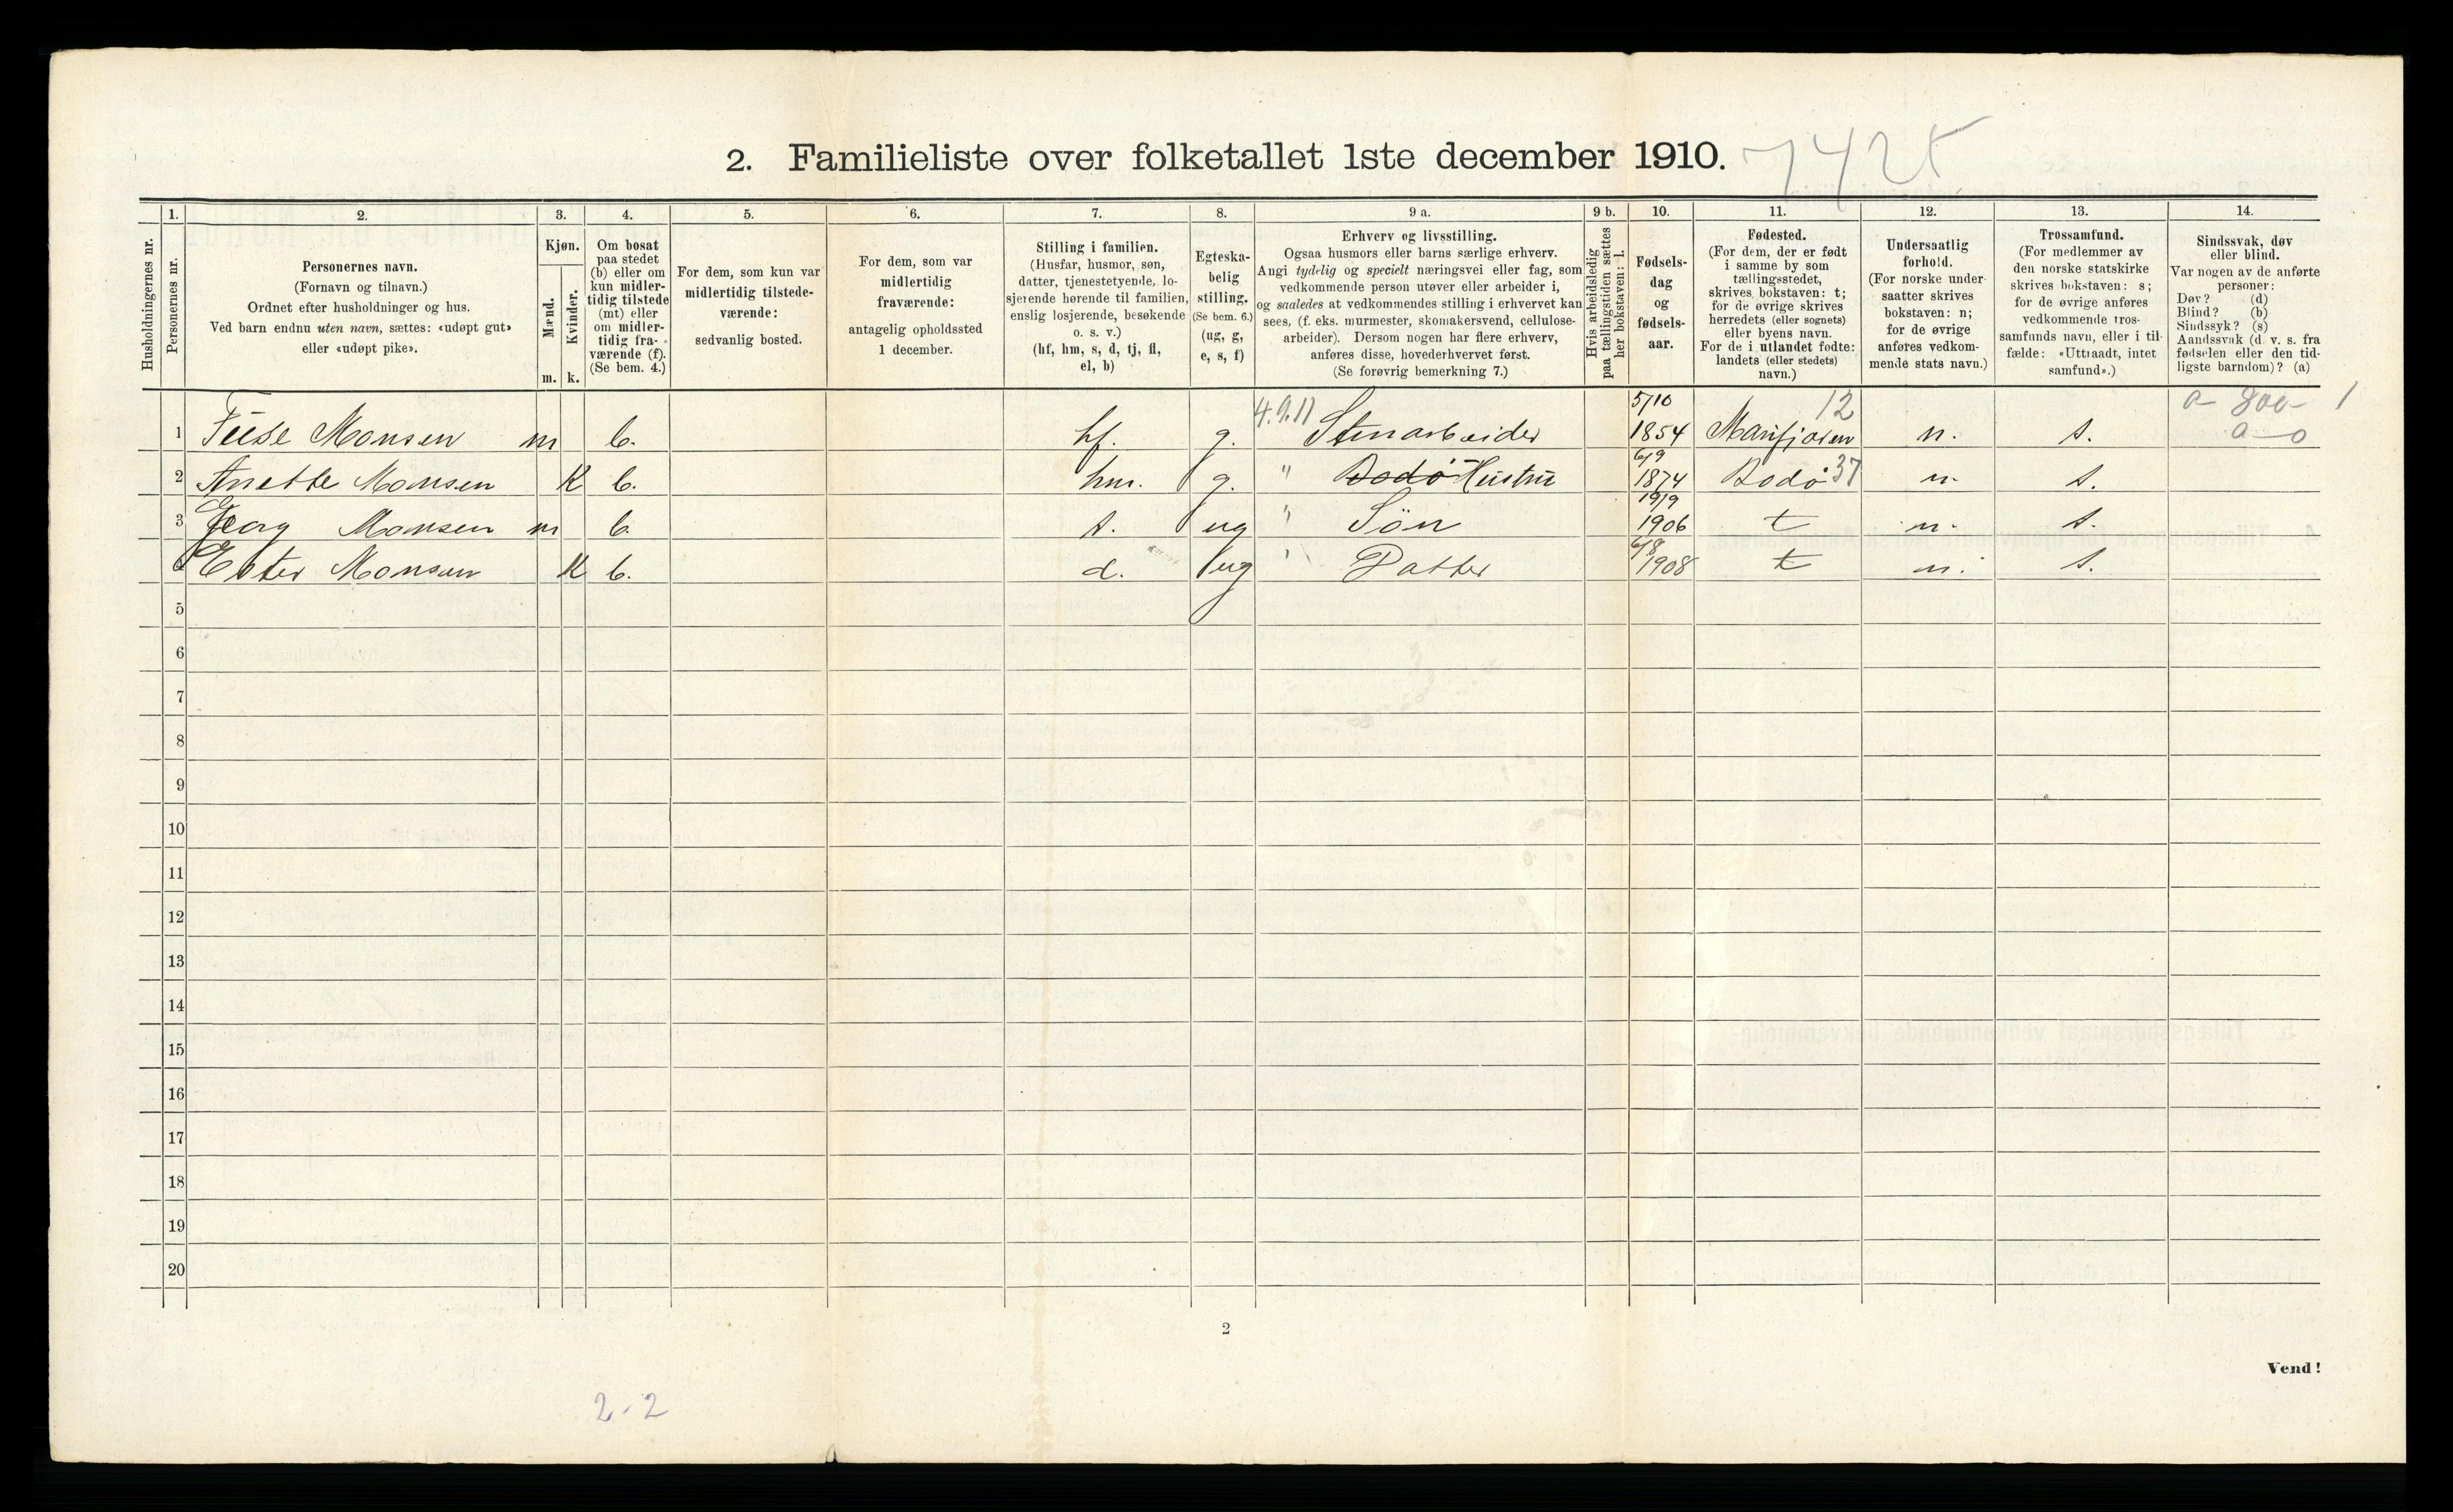 2. Familieliste over folketallet 1ste december 1910. 7425
1. 2. 3. 4. 5. 6. 7. 8. 9 a. 9 b. 10. 11. 12. 13. 14.
Husholdningernes nr.
Personernes nr.
Personernes navn.
(Fornavn og tilnavn.)
Ordnet efter husholdninger og hus.
Ved barn endnu uten navn, sættes: «udøpt gut»
eller «udøpt pike».
Kjøn.
Mænd.
m.
Kvinder.
k.
Om bosat
paa stedet
(b) eller om
kun midler-
tidig tilstede
(mt) eller
om midler-
tidig fra-
værende (f).
(Se bem. 4.)
For dem, som kun var
midlertidig tilstede-
værende:
sedvanlig bosted.
For dem, som var
midlertidig
fraværende:
antagelig opholdssted
1 december.
Stilling i familien.
(Husfar, husmor, søn,
datter, tjenestetyende, lo-
sjerende hørende til familien,
enslig losjerende, besøkende
o. s. v.)
(hf, hm, s, d, tj, fl,
el, b)
Egteska-
belig
stilling.
(Se bem. 6.)
(ug, g,
e, s, f)
Erhverv og livsstilling.
Ogsaa husmors eller barns særlige erhverv.
Angi tydelig og specielt næringsvei eller fag, som
vedkommende person utøver eller arbeider i,
og saaledes at vedkommendes stilling i erhvervet kan
sees, (f. eks. murmester, skomakersvend, cellulose-
arbeider). Dersom nogen har flere erhverv,
anføres disse, hovederhvervet først.
(Se forøvrig bemerkning 7.)
Hvis arbeidsledig
paa tællingstiden sættes
her bokstaven: l.
Fødsels-
dag
og
fødsels-
aar.
Fødested.
(For dem, der er født
i samme by som
tællingsstedet,
skrives bokstaven: t;
for de øvrige skrives
herredets (eller sognets)
eller byens navn.
For de i utlandet fødte:
landets (eller stedets)
navn.)
Undersaatlig
forhold.
(For norske under-
saatter skrives
bokstaven: n;
for de øvrige
anføres vedkom-
mende stats navn.)
Trossamfund.
(For medlemmer av
den norske statskirke
skrives bokstaven: s;
for de øvrige anføres
vedkommende tros-
samfunds navn, eller i til-
fælde: «Uttraadt, intet
samfund».)
Sindssvak, døv
eller blind.
Var nogen av de anførte
personer:
Døv? (d)
Blind? (b)
Sindssyk? (s)
Aandssvak (d. v. s. fra
fødselen eller den tid-
ligste barndom)? (a)
4.9.11 5/10 12 a- 800- 1
1 Monsen m b. hf. g. Stenarbeider 1854 Marifjoren n. s. a-o
6/9
2 Anette Monsen K b. hm. g. " Bodø Hustru 1874 Bodø 37 n. s.
19/9
3 Georg Monsen m b. s. ug " Søn 1906 t n. s.
6/8
4 Ester Monsen K b. d. ug " Datter 1908 t n. s.
5
6
7
8
9
10
11
12
13
14
15
16
17
18
19
20
2
Vend!
2-2